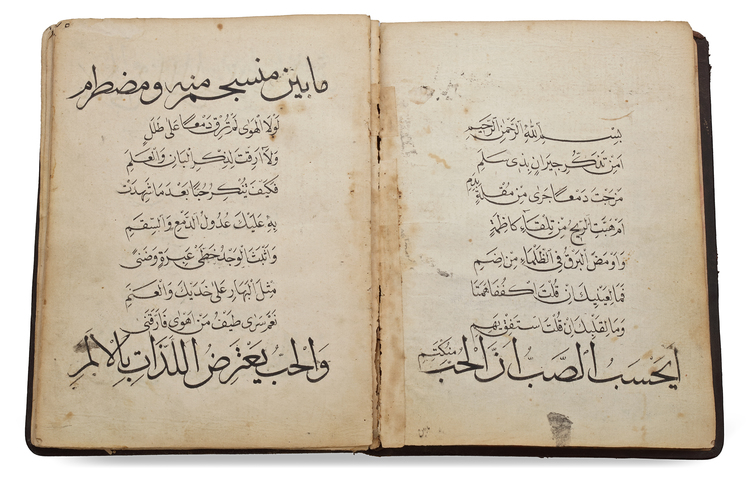 بسم الله الرحمن الرحيم
امن تذكر جيران بذى سلم
مزجت دمعا جرى من مقلة بدم
ام هبت الريح من تلقاء كاظمة
واومض البرق فى الظلماء من اضم
فما لعينيك ان قلت اكففا همتا
وما لقلبك ان قلت استفق يهم
ايحسب الصب ان الحب منكتم
ما بين منسجم منه ومضطرم
لولا الهوى لم ترق دمعا على طلل
ولا ارقت لذكر البان والعلم
فكيف تنكر حبا بعد ما شهدت
به عليك عدول الدمع والسقم
واثبت الوجد خطى عبرة وضنى
مثل البهار على خديك والعنم
نعم سرى طيف من اهوى فارقنى
والحب يعترض اللذات بالالم